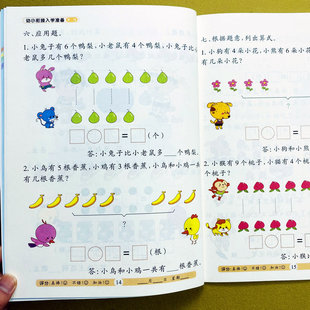 幼小衔接入学准备
六、应用题。
1. 小兔子有6个鸭梨,小老鼠有4个鸭梨,小兔子比小
老鼠多几个鸭梨?
?
□○□=□(个)
答:小兔子比小老鼠多___个鸭梨。
2. 小鸟有5根香蕉,小鸡有3根香蕉,小鸟和小鸡一共
有几根香蕉?
?
□○□=□(根)
答:小鸟和小鸡一共有___根香蕉。
14
月 日 星期
七、根据题意,列出算式。
1. 小狗有4朵小花,小熊有
有几朵小花?
?
□○□=
答:小狗和小熊
2. 小猴有9个桃子,小猫有4个
个桃子?
□○□
答:小猴比
15